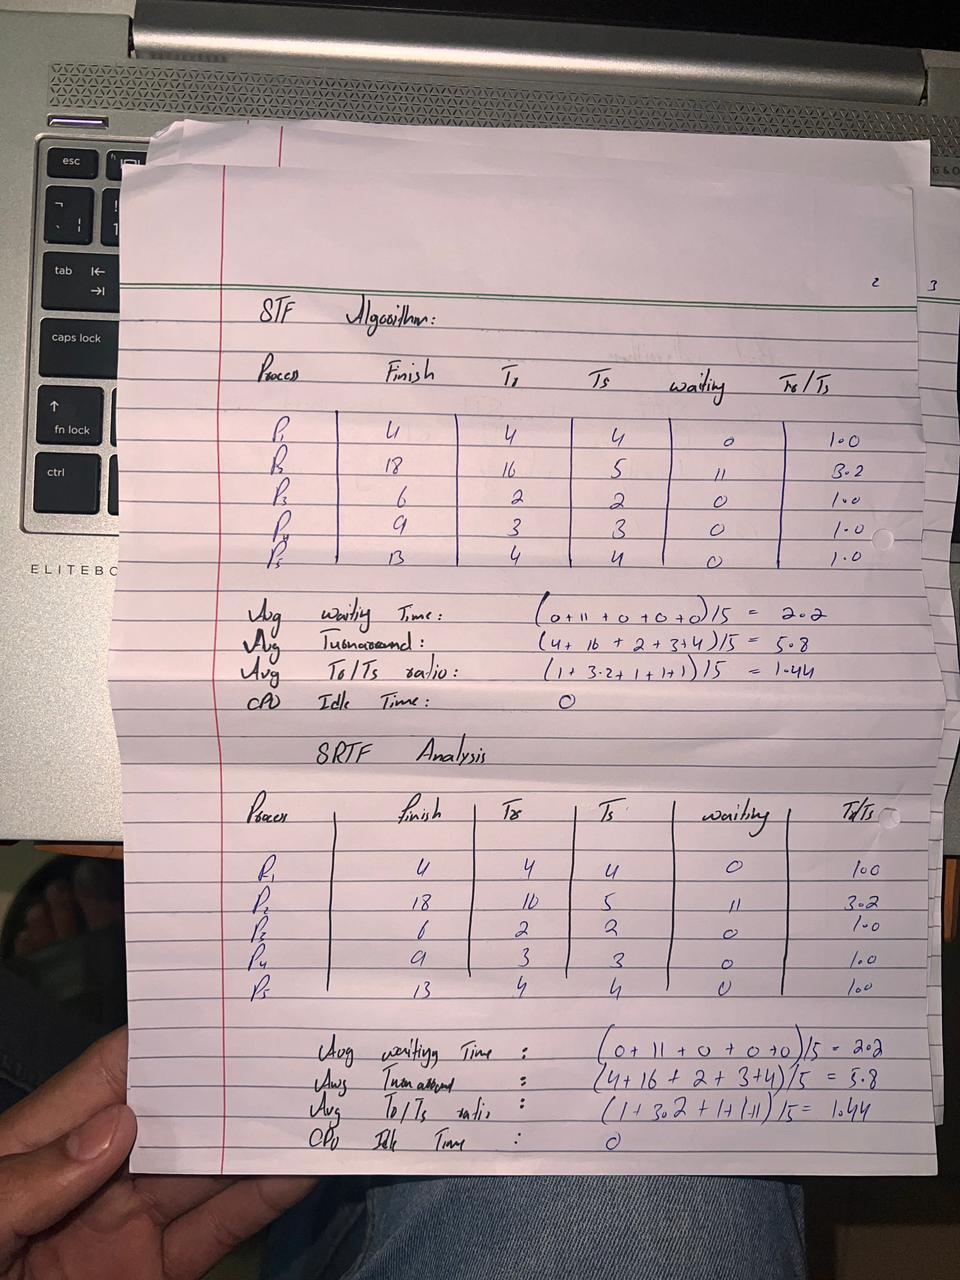 esc
tab
caps lock
fn lock
ctrl
ELITEBO
G&O
2
3
STF Algorithm:
Process Finish Tr Ts waiting Tr/Ts
P1 4 4 4 0 1.0
P2 18 16 5 11 3.2
P3 6 2 2 0 1.0
P4 9 3 3 0 1.0
P5 13 4 4 0 1.0
Avg waitiy Time: (0+11+0+0+0)/5 = 2.2
Avg Turnaround: (4+16+2+3+4)/5 = 5.8
Avg Tr/Ts ratio: (1+3.2+1+1+1)/5 = 1.44
CPU Idle Time: 0
SRTF Analysis
Process finish Tr Ts waiting Tr/Ts
P1 4 4 4 0 1.0
P2 18 16 5 11 3.2
P3 6 2 2 0 1.0
P4 9 3 3 0 1.0
P5 13 4 4 0 1.0
Avg waiting Time : (0+11+0+0+0)/5 = 2.2
Avg Turnaround : (4+16+2+3+4)/5 = 5.8
Avg Tr/Ts ratio : (1+3.2+1+1+1)/5 = 1.44
CPU Idle Time : 0